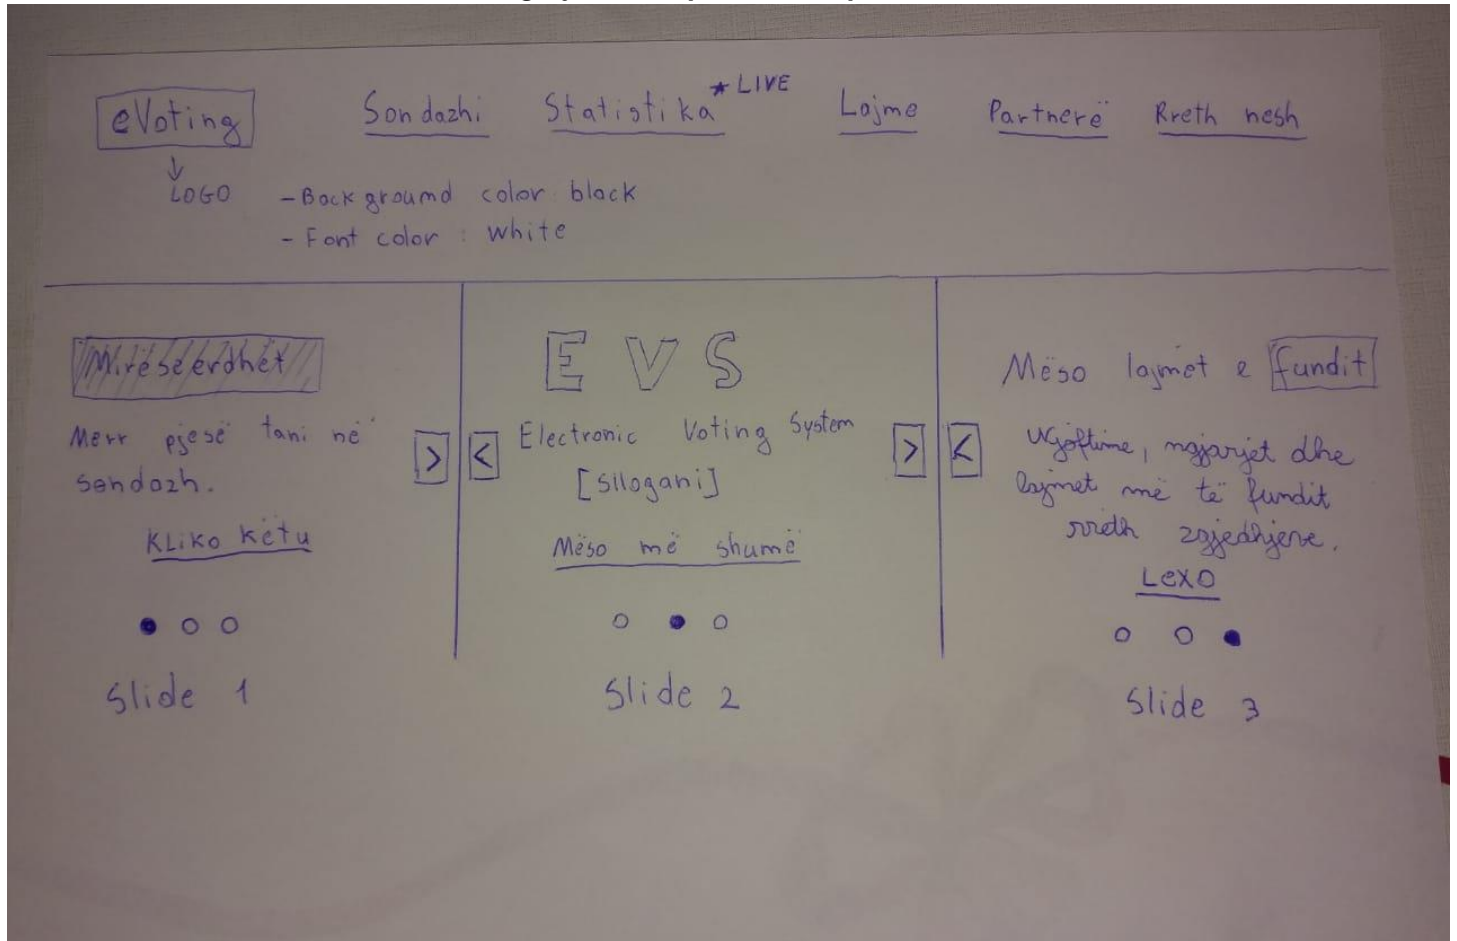 eVoting Sondazhi Statistika * LIVE Lajme Partnerë Rreth nesh
↓
LOGO
- Background color black
- Font color : white
Mirëseerdhët
Merr pjesë tani në
sondazh.
KLiko këtu
Slide 1
>
<
E V S
Electronic Voting System
[Sllogani]
Mëso më shumë
Slide 2
>
<
Mëso lajmet e fundit
Njoftime, ngjarjet dhe
lajmet më të fundit
rreth zgjedhjeve.
Lexo
Slide 3